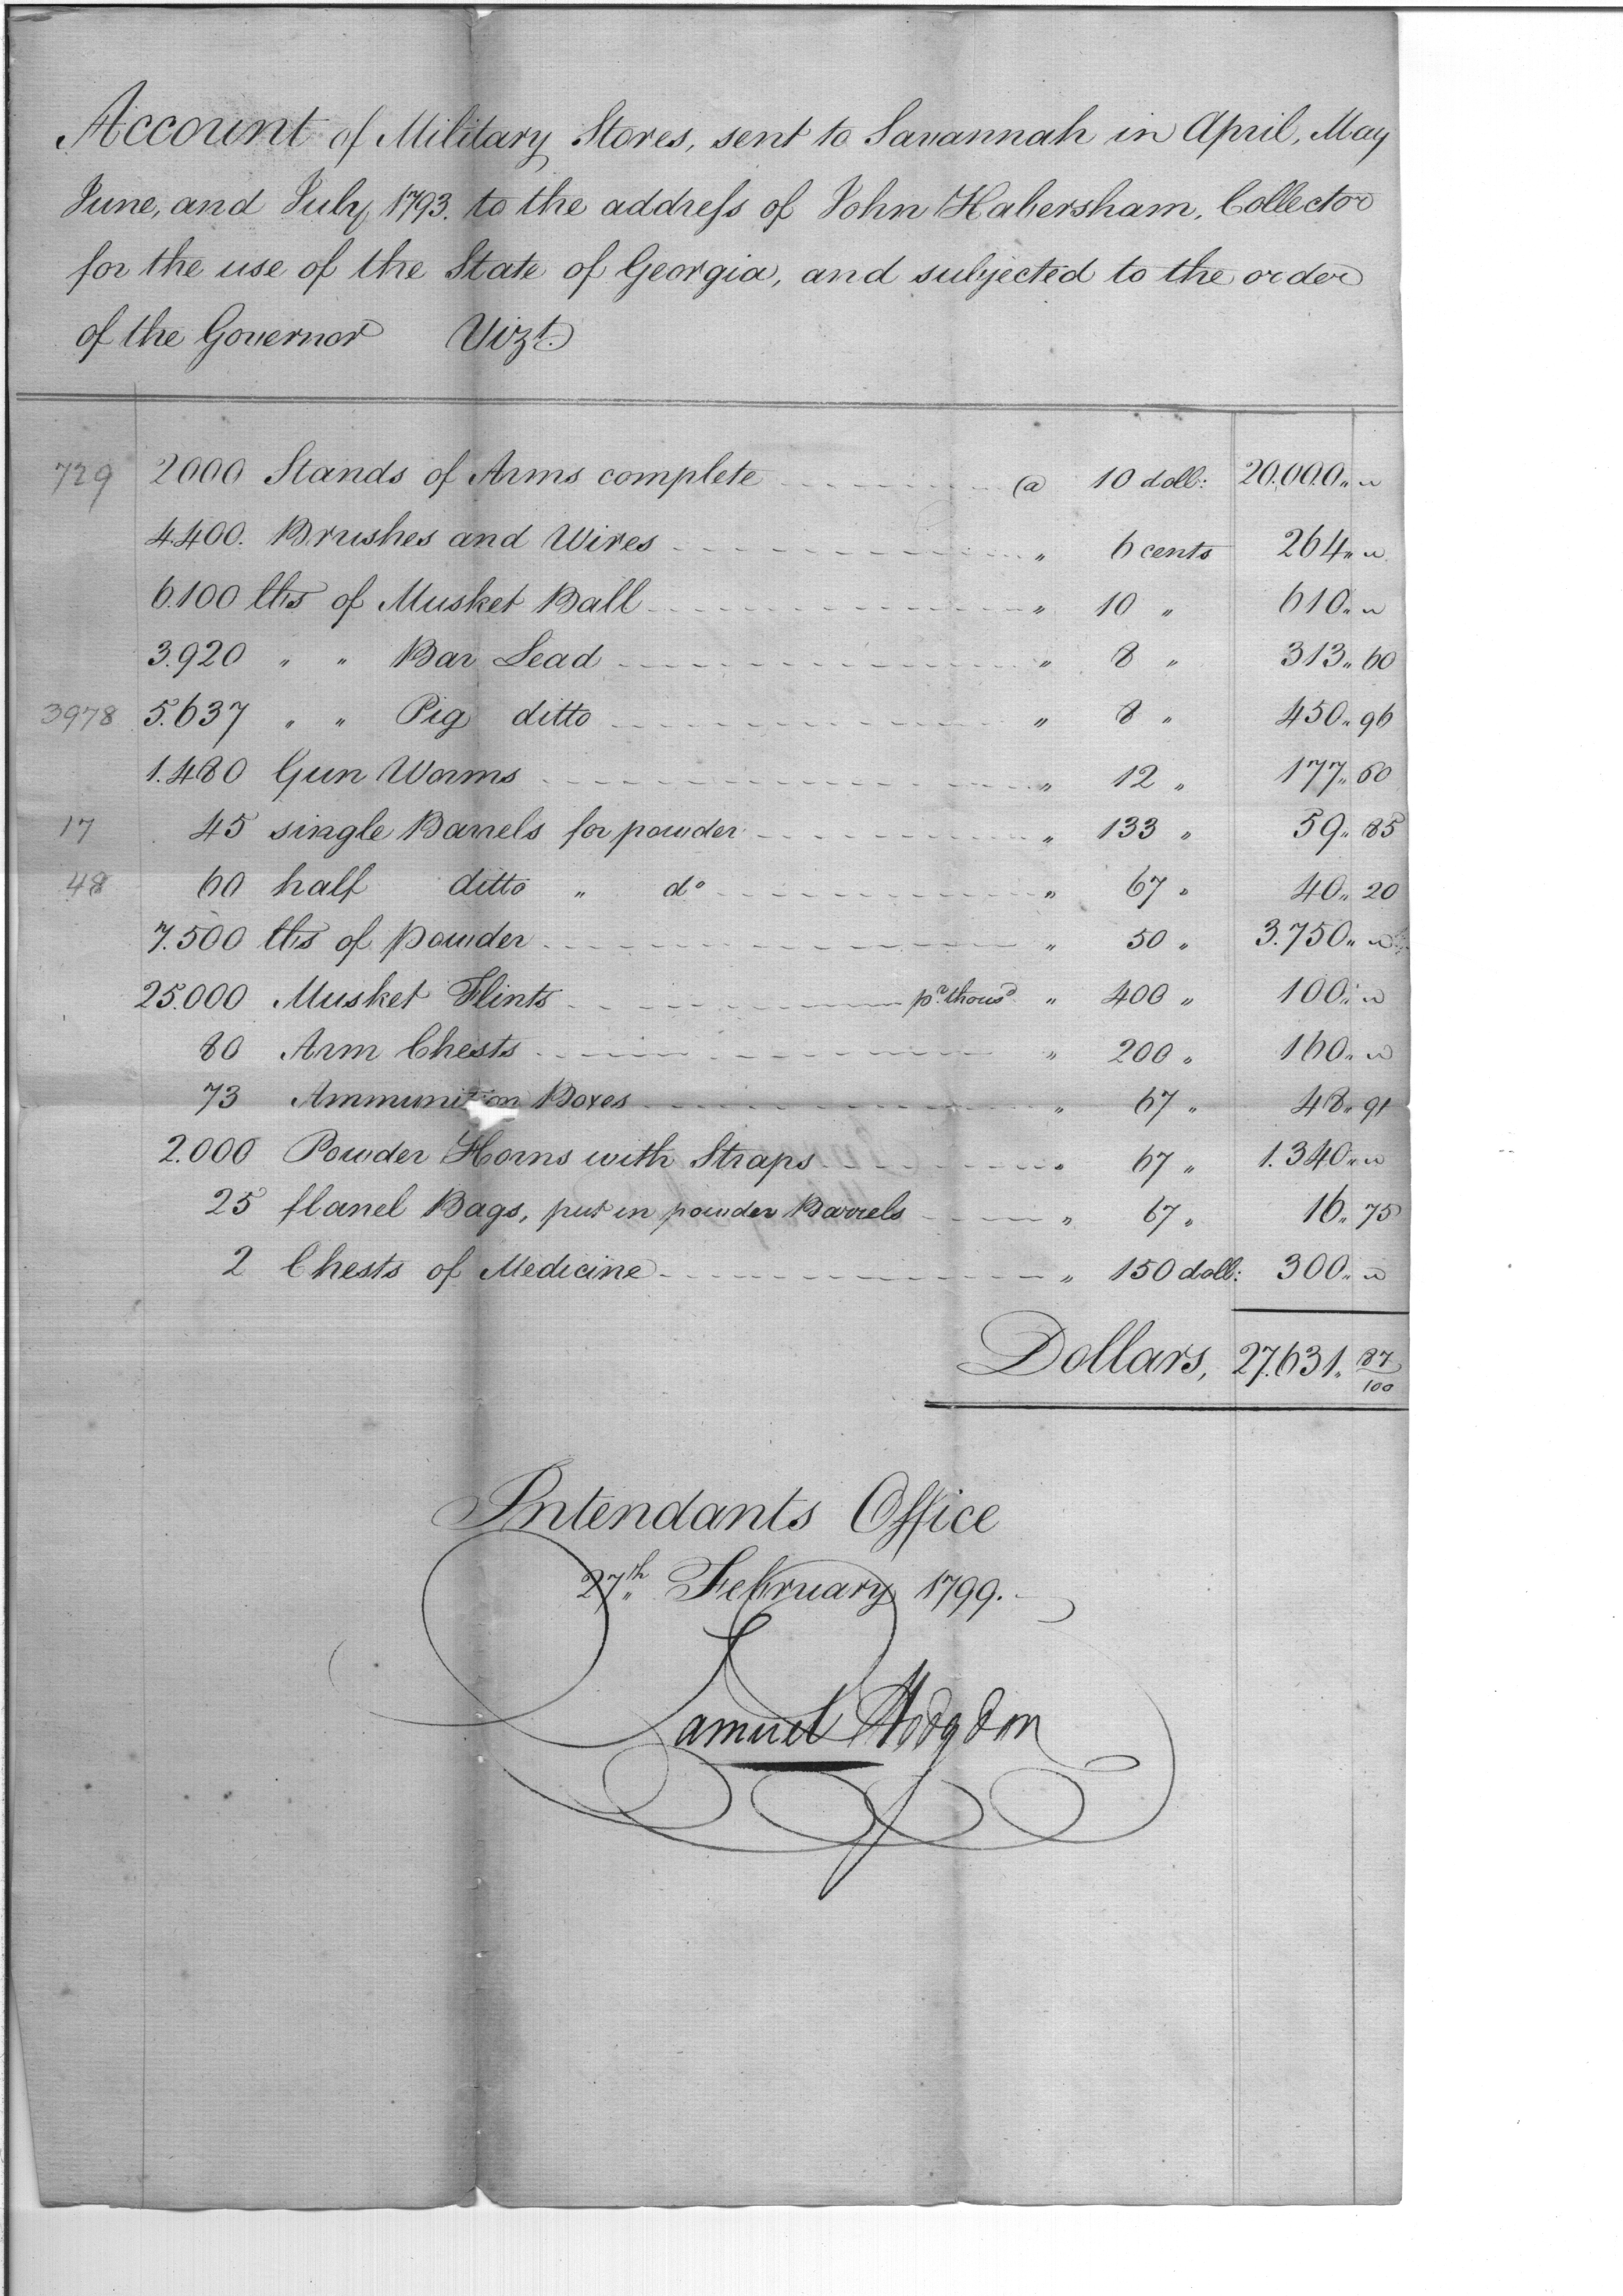 Account of Military Stores, sent to Savannah in April, May
June, and July, 1793. to the address of John Habersham, Collector
for the use of the State of Georgia, and subjected to the order
of the Governor Vizt.
729 2000 Stands of Arms complete @ 10 doll: 20.000.. "
4.400. Brushes and Wires " 6 cents 264.. "
6.100 lbs of Musket Ball " 10 " 610.. "
3.920 " " Bar Lead " 8 " 313.. 60
3978 5.637 " " Pig ditto " 8 " 450.. 96
1.480 Gun Worms " 12 " 177.. 60
17 45 single Barrels for powder " 133 " 59.. 85
48 60 half ditto " do " 67 " 40.. 20
7.500 lbs of powder " 50 " 3.750.. "
25.000 Musket Flints pr. thousd " 400 " 100.. "
80 Arm Chests " 200 " 160.. "
73 Ammunition Boxes " 67 " 48.. 91
2.000 Powder Horns with Straps " 67 " 1.340.. "
25 flanel Bags, put in powder Barrels " 67 " 16.. 75
2 Chests of Medicine " 150 doll: 300.. "
Dollars, 27.631.. 87/100
Intendants Office
27th February 1799.
Samuel Hodgdon